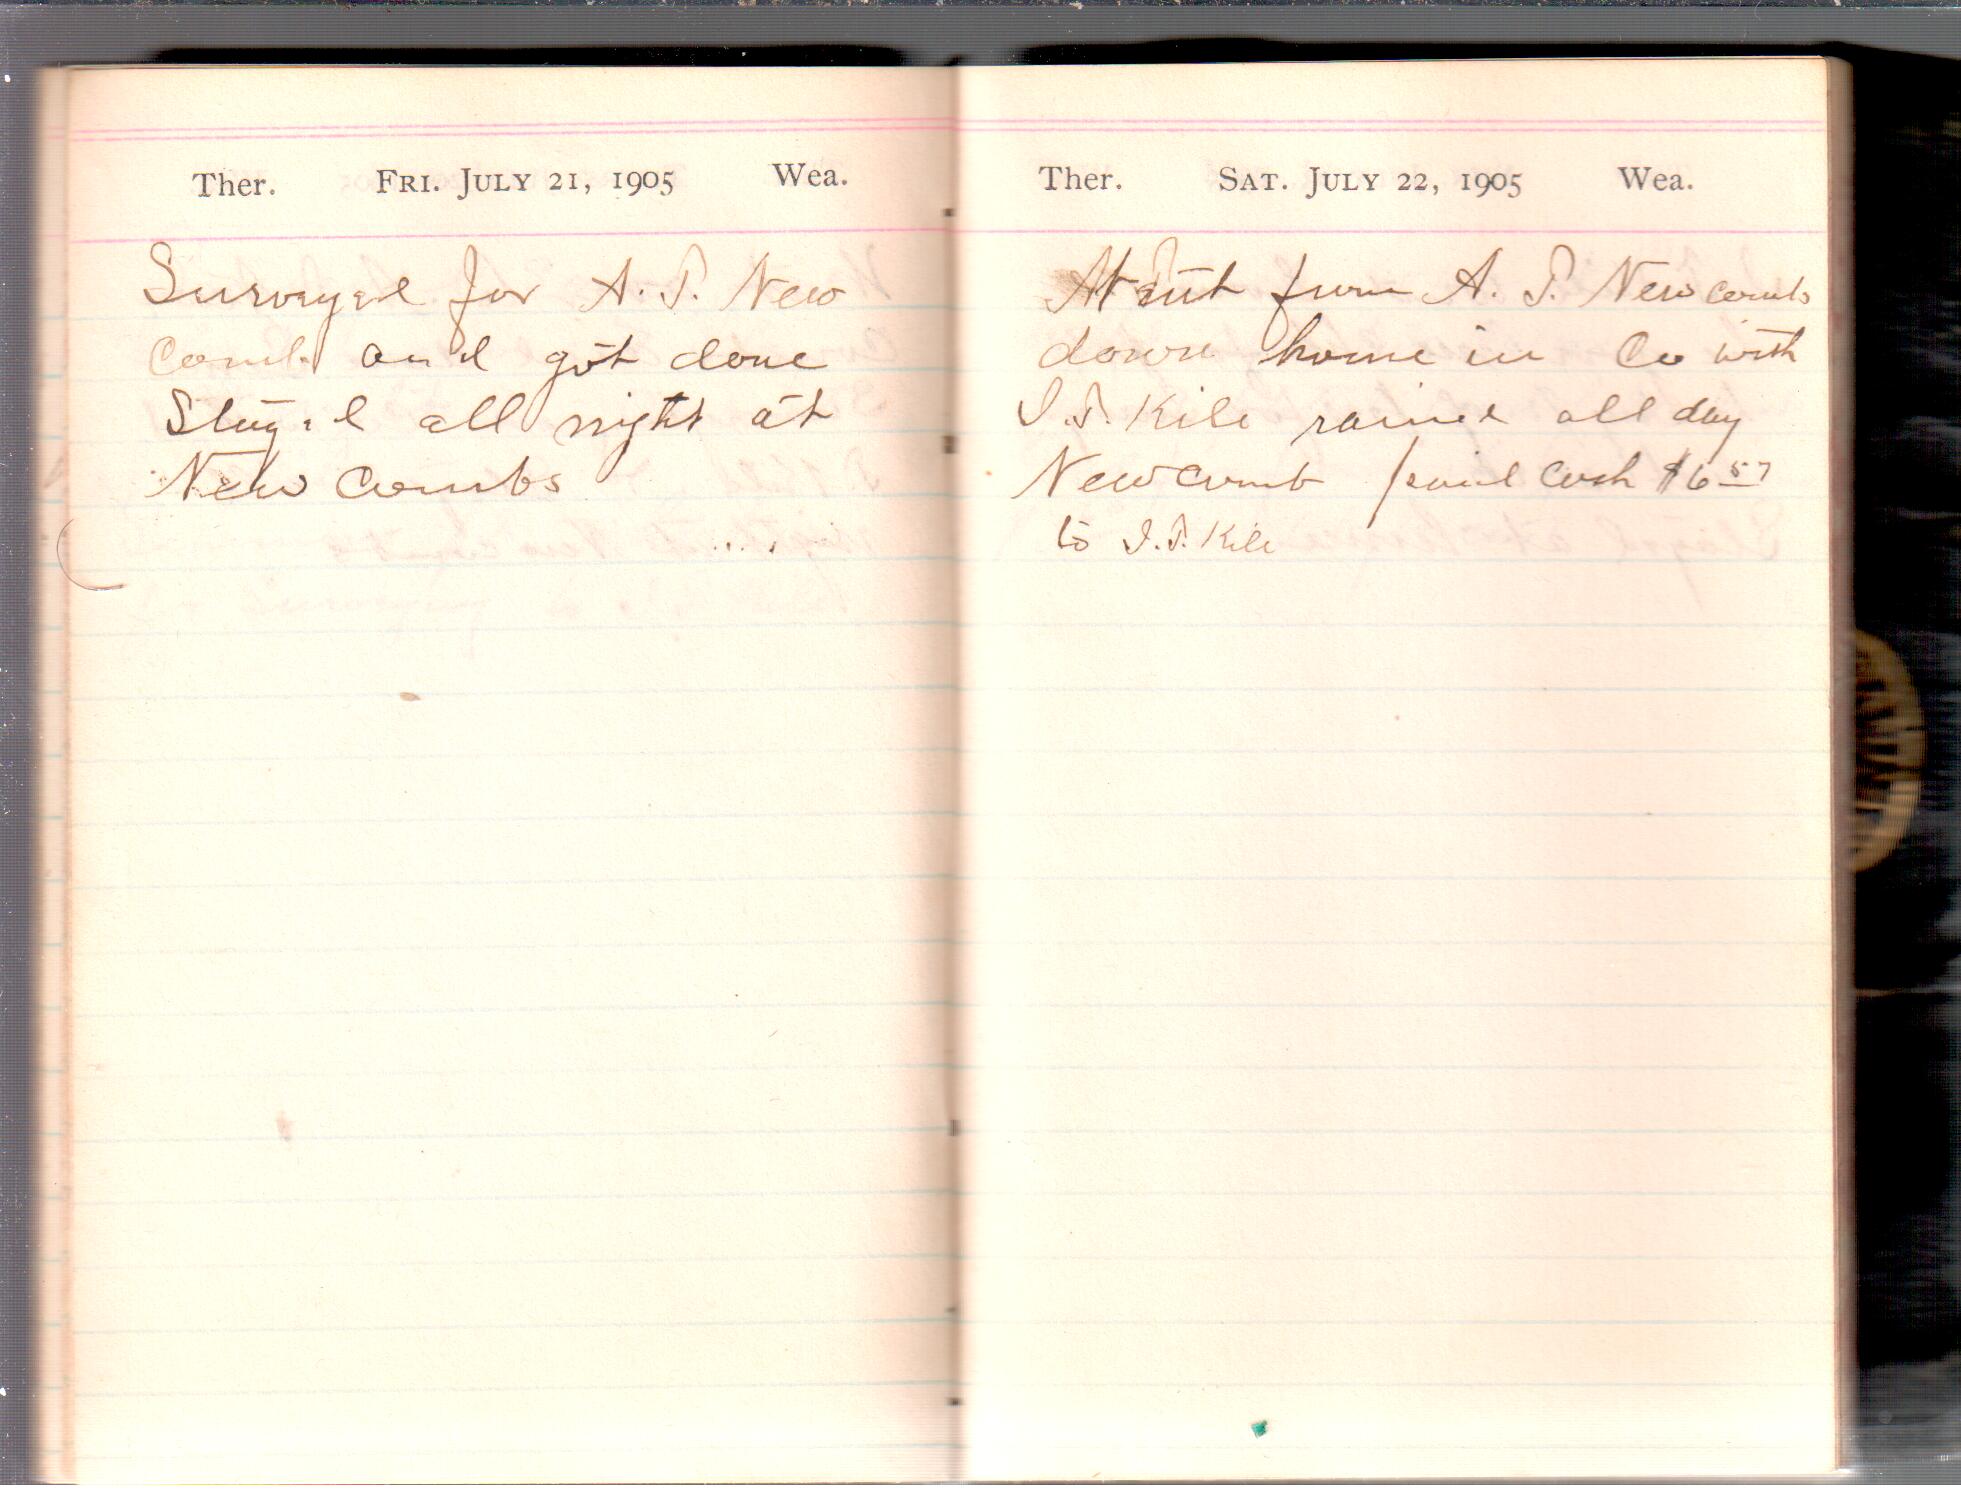 Ther. FRI. JULY 21, 1905 Wea.
Surveyed for A. T. New
Comb and got done
Stayed all night at
New Combs
Ther. SAT. JULY 22, 1905 Wea.
from A. T. New combs
down home in Co with
Kile rained all day
New comb paid cash $6 57
to Kile